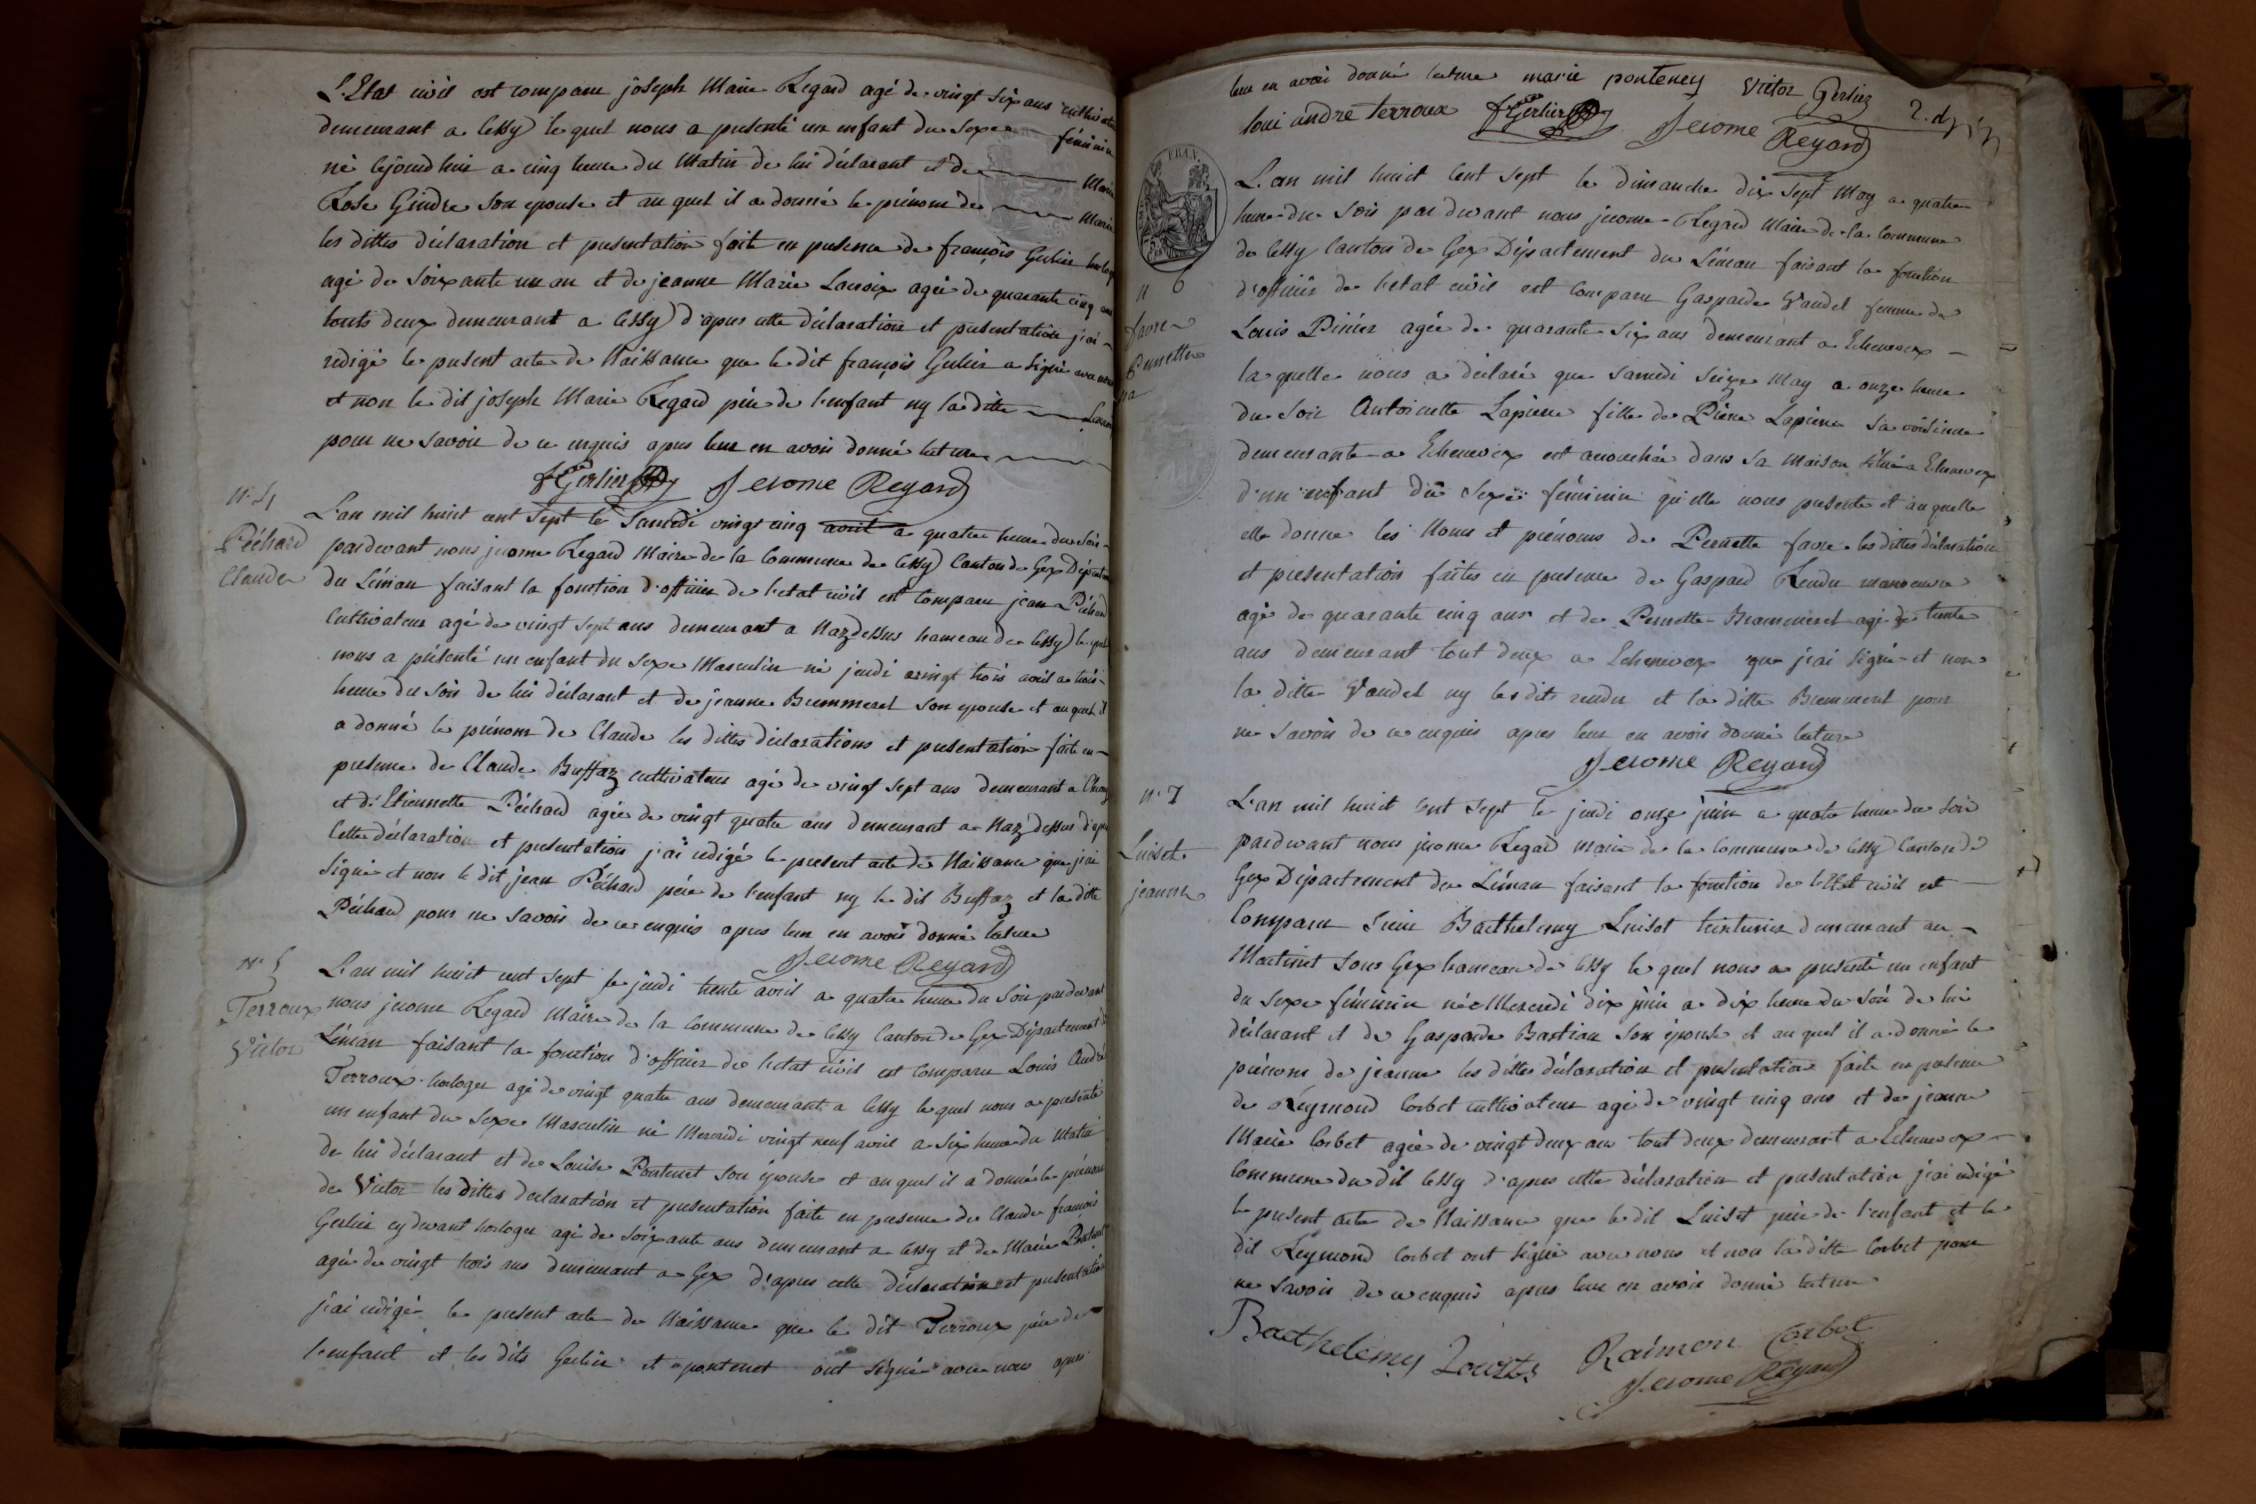 L'Etat civil est comparu joseph Marie Regard agé de vingt six ans cultivateur
demeurant a Cessy le quel nous a presenté un enfant du Sexe féminin
né cejourdhui a cinq heure du Matin de lui déclarant et de Marie
Rose Gindre Son epouse et au quel il a donné le prénom de Marie
les dittes déclaration et presentation fait en presence de françois Gerlier horloger
agé de Soixante un an et de jeanne Marie Lacroix agée de quarante cinq ans
touts deux demeurant a Cessy d'apres cette déclaration et presentation j'ai
redigé le present acte de Naissance que le dit françois Gerlier a Signé avec nous
et non le dit joseph Marie Regard pére de l'enfant ny la ditte Lacroix
pour ne Savoir de ce enquis apres leur en avoir donné lecture
f Gerlier Jerome Regard
N. 4
Péchard
Claude
L'an mil huit cent Sept le Samedi vingt cinq avril a quatre heure du Soir
pardevant nous jerome Regard Maire de la Commune de Cessy Canton de Gex Départem
du Léman faisant la fonction d'officier de l'etat civil est Comparu jean Péchard
Cultivateur agé de vingt Sept ans demeurant a Nazdessus hameau de Cessy le quel
nous a présenté un enfant du Sexe Masculin né jeudi vingt trois avril a trois
heure du Soir de lui déclarant et de jeanne Bremmeret Son epouse et au quel il
a donné le prénom de Claude les dittes déclarations et presentation faite en
presence de Claude Buffaz cultivateur agé de vingt Sept ans demeurant a
et d'Etiennette Péchard agée de vingt quatre ans demeurant a Naz dessus d'apres
Cette déclaration et presentation j'ai redigé le present acte de Naissance que j'ai
Signé et non le dit jean Péchard pére de l'enfant ny le dit Buffaz et la ditte
Péchard pour ne Savoir de ce enquis apres leur en avoir donné lecture
Jerome Regard
N. 5
Terroux
Victor
L'an mil huit cent Sept le jeudi trente avril a quatre heure du Soir pardevant
nous jerome Regard Maire de la Commune de Cessy Canton de Gex Département du
Léman faisant la fonction d'officier de l'etat civil est Comparu Louis André
Terroux horloger agé de vingt quatre ans demeurant a Cessy le quel nous a presenté
un enfant du Sexe Masculin né Mercredi vingt neuf avril a Six heure du Matin
de lui déclarant et de Louise Pontenet Son épouse et au quel il a donné le prénom
de Victor les dittes declaration et presentation faite en presence de Claude françois
Gerlier cy devant horloger agé de Soixante ans demeurant a Cessy et de Marie Pontenet
agée de vingt trois ans demeurant a Gex d'apres cette déclaration et presentation
j'ai redigé le present acte de Naissance que le dit Terroux pére de
l'enfant et les dits Gerlier et pontenet ont Signé avec nous apres
leur en avoir donné lecture marie ponteney Victor Gerlier
loui andré terroux f Gerlier Jerome Regard
FRAN.
N 6
favre
Pernette
L'an mil huit Cent Sept le dimanche dix Sept May a quatre
heure du Soir par devant nous jerome Regard Maire de la Commune
de Cessy Canton de Gex Département du Léman faisant la fonction
d'officier de l'etat civil est Comparu Gasparde Vandel femme de
Louis Pinier agée de quarante Six ans demeurant a Echenevex
la quelle nous a déclaré que Samedi Seize May a onze heure
du Soir Antoinette Lapierre fille de Pierre Lapierre Sa voisine
demeurante a Echenevex est accouchée dans Sa Maison Située a Echenevex
d'un enfant du Sexe féminin qu'elle nous presente et au quelle
elle donne les Noms et prénoms de Pernette favre les dittes déclaration
et presentation faites en presence de Gaspard Rendu manoeuvre
agé de quarante cinq ans et de Pernette Brammeret agé de trente
ans demeurant tout deux a Echenevex que j'ai Signé et non
la ditte Vandel ny les dit rendu et la ditte Bremmeret pour
ne Savoir de ce enquis apres leur en avoir donné lecture
Jerome Regard
N. 7
Luiset
jeanne
L'an mil huit Cent Sept le jeudi onze juin a quatre heure du Soir
pardevant nous jerome Regard maire de la Commune de Cessy Canton de
Gex Département du Léman faisant la fonction de l'Etat civil est
Comparu Sieur Barthelemy Luisot teinturier demeurant au
Martinet Sous Gex hameau de Cessy le quel nous a presenté un enfant
du Sexe féminin née Mercredi dix juin a dix heure du Soir de lui
déclarant et de Gasparde Bastian Son épouse et au quel il a donné le
prénom de jeanne les dittes déclaration et presentation faite en presence
de Reymond Corbet cultivateur agé de vingt cinq ans et de jeanne
Marie Corbet agée de vingt deux an tout deux demeurant a Echenevex
Commune du dit Cessy d'apres cette déclaration et presentation j'ai redigé
le present acte de Naissance que le dit Luiset pére de l'enfant et le
dit Reymond Corbet ont Signé avec nous et non la ditte Corbet pour
ne Savoir de ce enquis apres leur en avoir donné lecture
Barthelemy Raimon Corbet
Jerome Regard